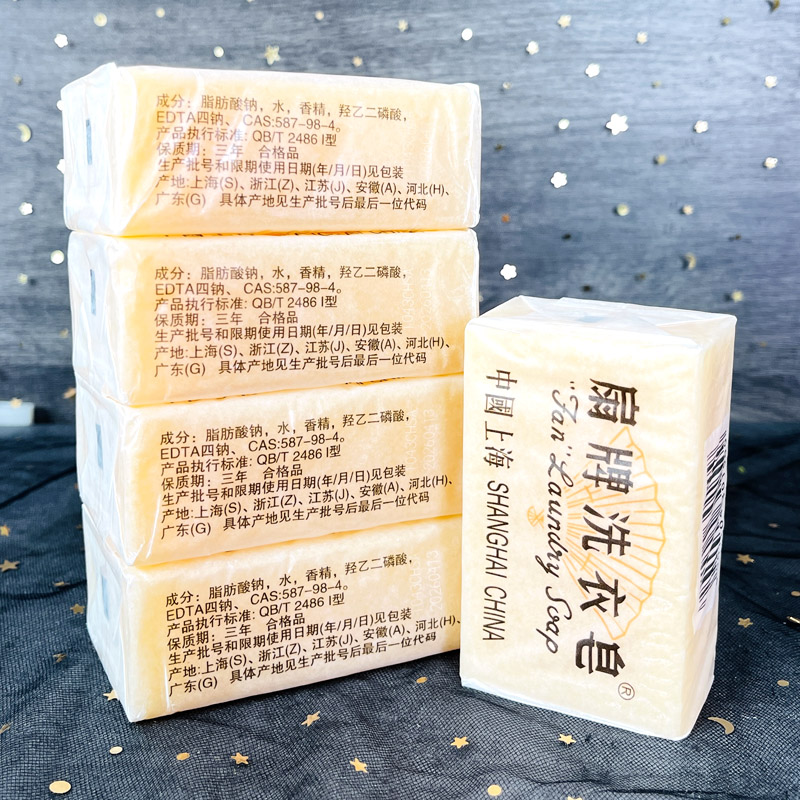 成分：脂肪酸钠，水，香精，羟乙二磷酸，
EDTA四钠、 CAS:587-98-4。
产品执行标准: QB/T 2486 I型
保质期：三年 合格品
生产批号和限期使用日期(年/月/日)见包装
产地:上海(S)、浙江(Z)、江苏(J)、安徽(A)、河北(H)、
广东(G) 具体产地见生产批号后最后一位代码
成分：脂肪酸钠，水，香精，羟乙二磷酸，
EDTA四钠、 CAS:587-98-4。
产品执行标准: QB/T 2486 I型
保质期：三年 合格品
生产批号和限期使用日期(年/月/日)见包装
产地:上海(S)、浙江(Z)、江苏(J)、安徽(A)、河北(H)、
广东(G) 具体产地见生产批号后最后一位代码
成分：脂肪酸钠，水，香精，羟乙二磷酸，
EDTA四钠、 CAS:587-98-4。
产品执行标准: QB/T 2486 I型
保质期：三年 合格品
生产批号和限期使用日期(年/月/日)见包装
产地:上海(S)、浙江(Z)、江苏(J)、安徽(A)、河北(H)、
广东(G) 具体产地见生产批号后最后一位代码
成分：脂肪酸钠，水，香精，羟乙二磷酸，
EDTA四钠、 CAS:587-98-4。
产品执行标准: QB/T 2486 I型
保质期：三年 合格品
生产批号和限期使用日期(年/月/日)见包装
产地:上海(S)、浙江(Z)、江苏(J)、安徽(A)、河北(H)、
广东(G) 具体产地见生产批号后最后一位代码
扇牌洗衣皂®
"Fan" Laundry Soap
中國上海 SHANGHAI CHINA